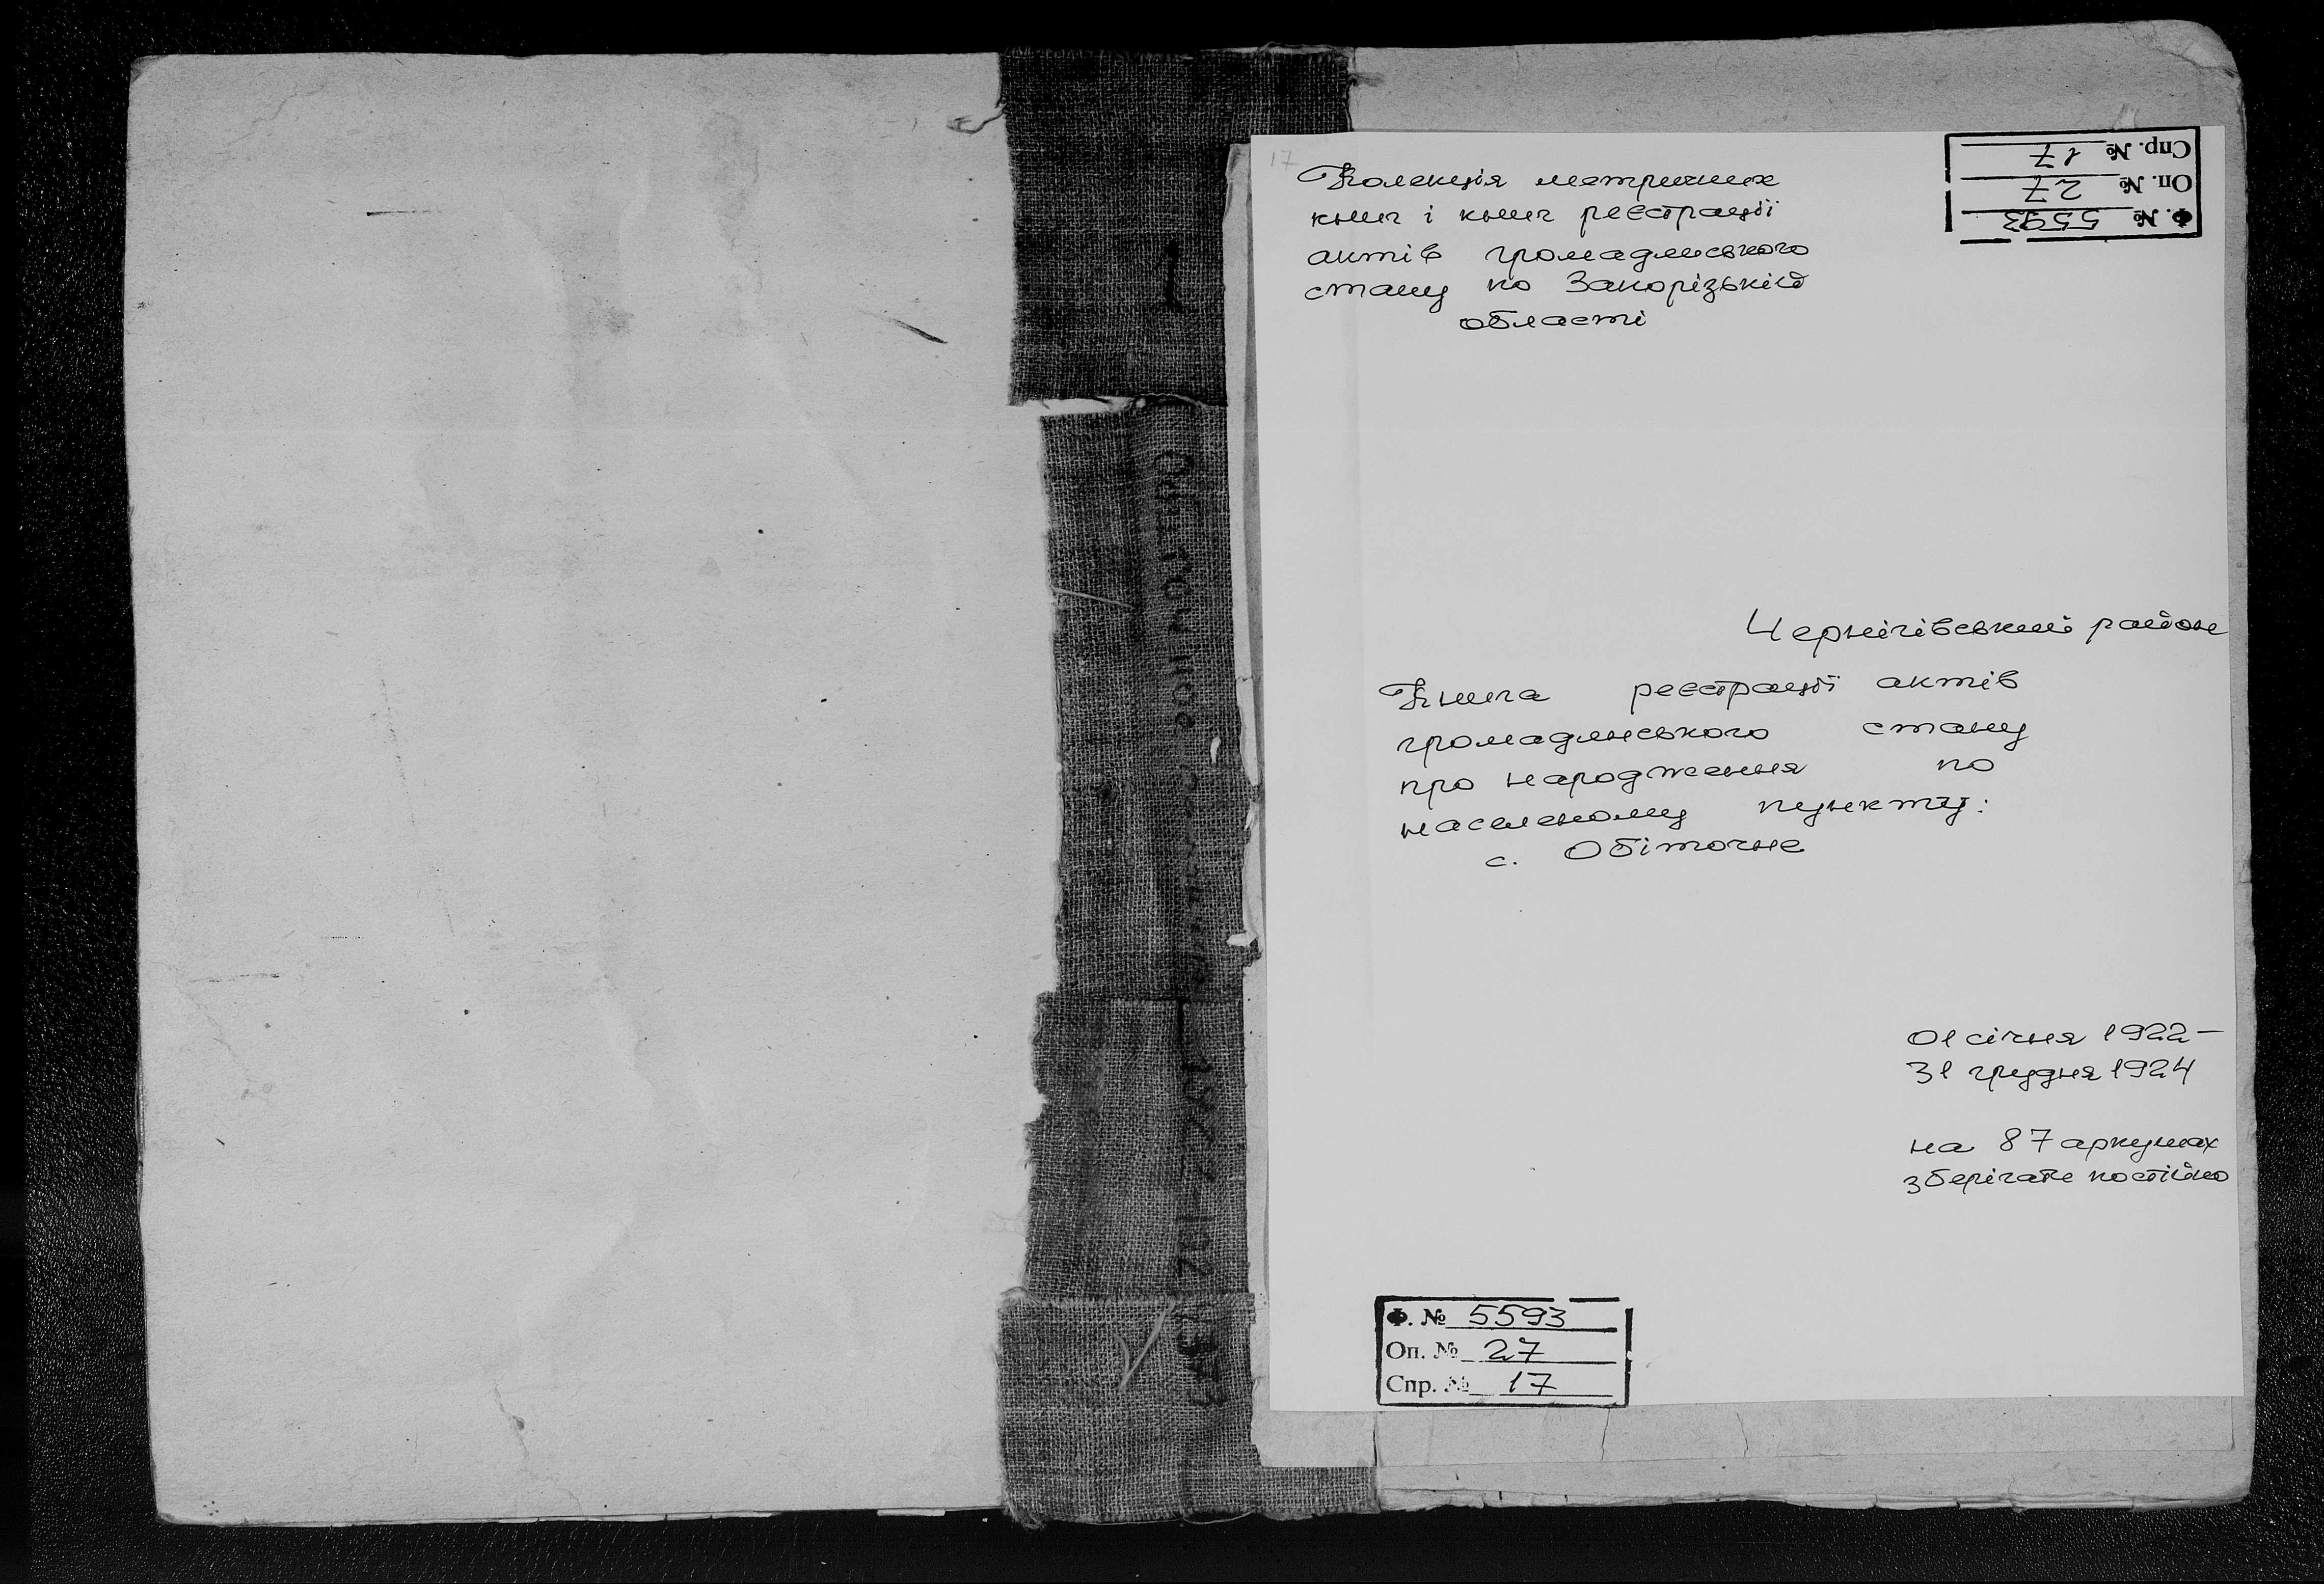 17
Колекція метричних
книг і книг реєстрації
актів громадянського
стану по Запорізькій
області
Ф. № 5593
Оп. № 27
Спр. № 17
Чернігівський район
Книга реєстрації актів
громадянського стану
про народження по
населеному пункту:
с. Обіточне
01 січня 1922 –
31 грудня 1924
на 87 аркушах
зберігати постійно
Ф. № 5593
Оп. № 27
Спр. № 17